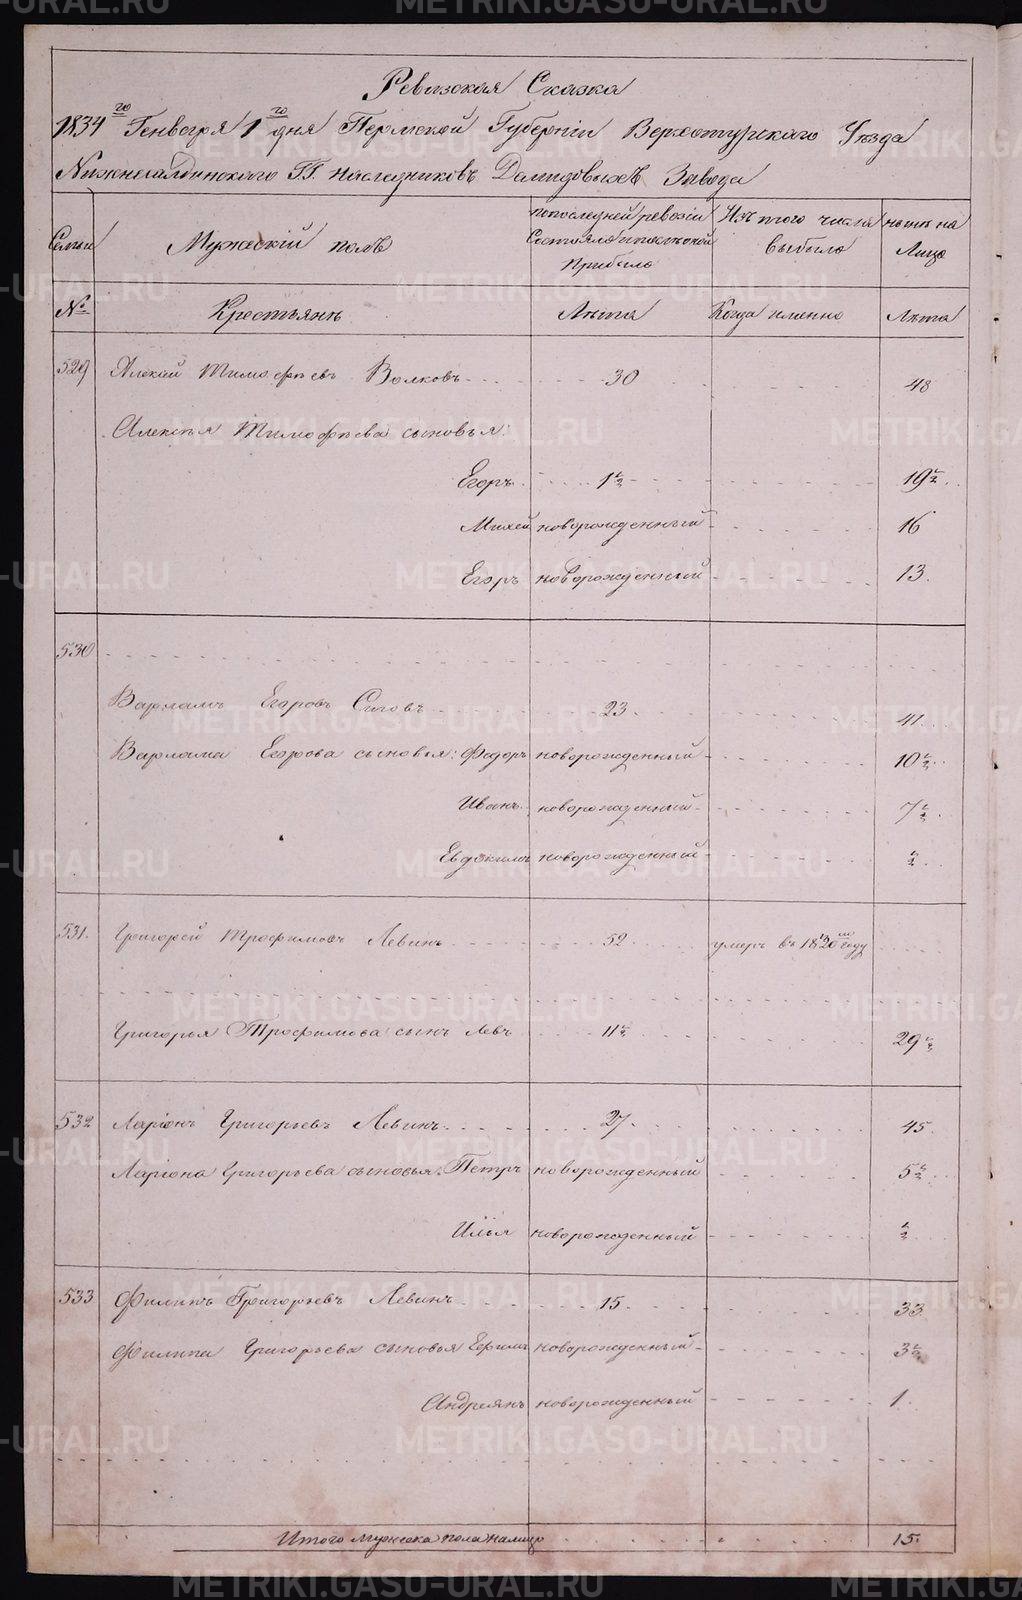 Ревизская Сказка
1834го Генваря 1го дня Пермской Губернiи Верхотурскаго Уѣзда
Нижнесалдинскаго Г.Г. Наслѣдниковъ Демидовыхъ Завода
Семьи Мужескiй полъ По последней ревизiи Состояло и после оной Прибыло Изъ того числа выбыло ныне на Лицо
№ Крестьянъ Лѣта Когда именно Лѣта
529 Алексѣй Тимофѣевъ Волковъ 30 48
Алексѣя Тимофѣева сыновья:
Егоръ 1½ 19½
Михей новорожденный 16
Егоръ новорожденный 13.
530
Варламъ Егоровъ Сиговъ 23 41
Варлама Егорова сыновья: Федоръ новорожденный 10½
Иванъ новорожденный 7½
Евдокимъ новорожденный ½
531. Григорей Трофимовъ Левинъ 52 умеръ въ 1820м году
Григорья Трофимова сынъ Левъ 11½ 29½
532 Ларiонъ Григорьевъ Левинъ 27. 45.
Ларiона Григорьева сыновья: Петръ новорожденный 5½
Илья новорожденный ½
533 Филипъ Григорьевъ Левинъ 15. 33
Филипа Григорьева сыновья Ефимъ новорожденный 3½
Андреянъ новорожденный 1.
Итого мужеска пола налицо 15.
METRIKI.GASO-URAL.RU